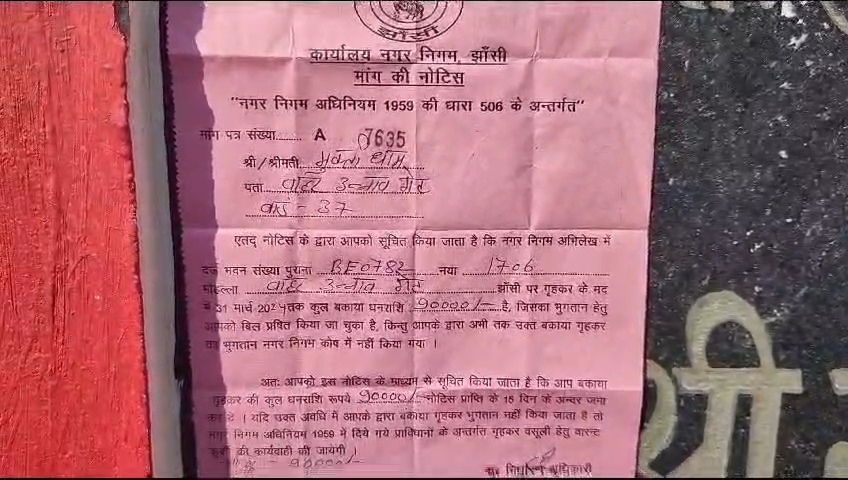 झाँसी
कार्यालय नगर निगम, झाँसी
माँग की नोटिस
"नगर निगम अधिनियम 1959 की धारा 506 के अन्तर्गत"
मांग पत्र संख्या......... A 7635
श्री/श्रीमती मुक्ता धाम
पता बाहर उन्नाव गेट
वार्ड - 37
एतद् नोटिस के द्वारा आपको सूचित किया जाता है कि नगर निगम अभिलेख में
दर्ज भवन संख्या पुराना BE0782 नया 1706
मोहल्ला बाहर उन्नाव गेट झाँसी पर गृहकर के मद
में 31 मार्च 2024 तक कुल बकाया धनराशि 90000/- है, जिसका भुगतान हेतु
आपको बिल प्रेषित किया जा चुका है, किन्तु आपके द्वारा अभी तक उक्त बकाया गृहकर
का भुगतान नगर निगम कोष में नहीं किया गया ।
अतः आपको इस नोटिस के माध्यम से सूचित किया जाता है कि आप बकाया
गृहकर की कुल धनराशि रूपये 90000/- नोटिस प्राप्ति के 15 दिन के अन्दर जमा
करें । यदि उक्त अवधि में आपके द्वारा बकाया गृहकर भुगतान नहीं किया जाता है तो
नगर निगम अधिनियम 1959 में दिये गये प्राविधानों के अन्तर्गत गृहकर वसूली हेतु वारन्ट
की कार्यवाही की जायेगी ।
90000/-
कर निर्धारण अधिकारी